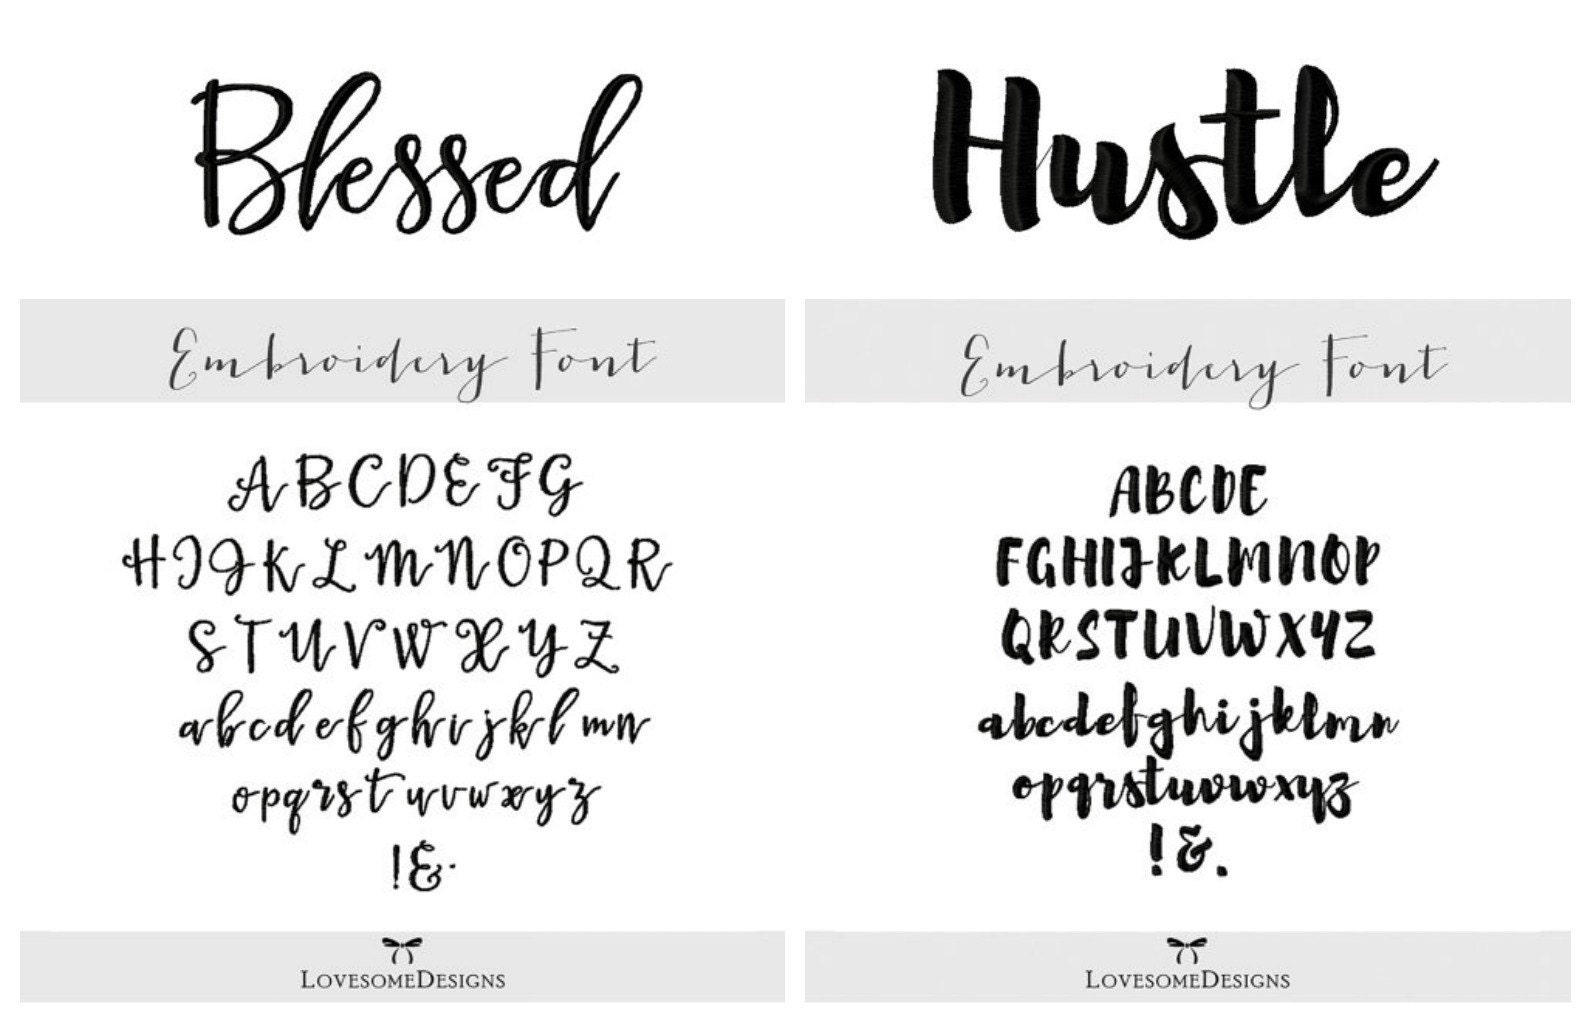 Blessed
Embroidery Font
ABCDEFG
HIJKLMNOPQR
STUVWXYZ
abcdefghijklmn
opqrstuvwxyz
!&.
LOVESOMEDESIGNS
Hustle
Embroidery Font
ABCDE
FGHIJKLMNOP
QRSTUVWXYZ
abcdefghijklmn
opqrstuvwxyz
!&.
LOVESOMEDESIGNS